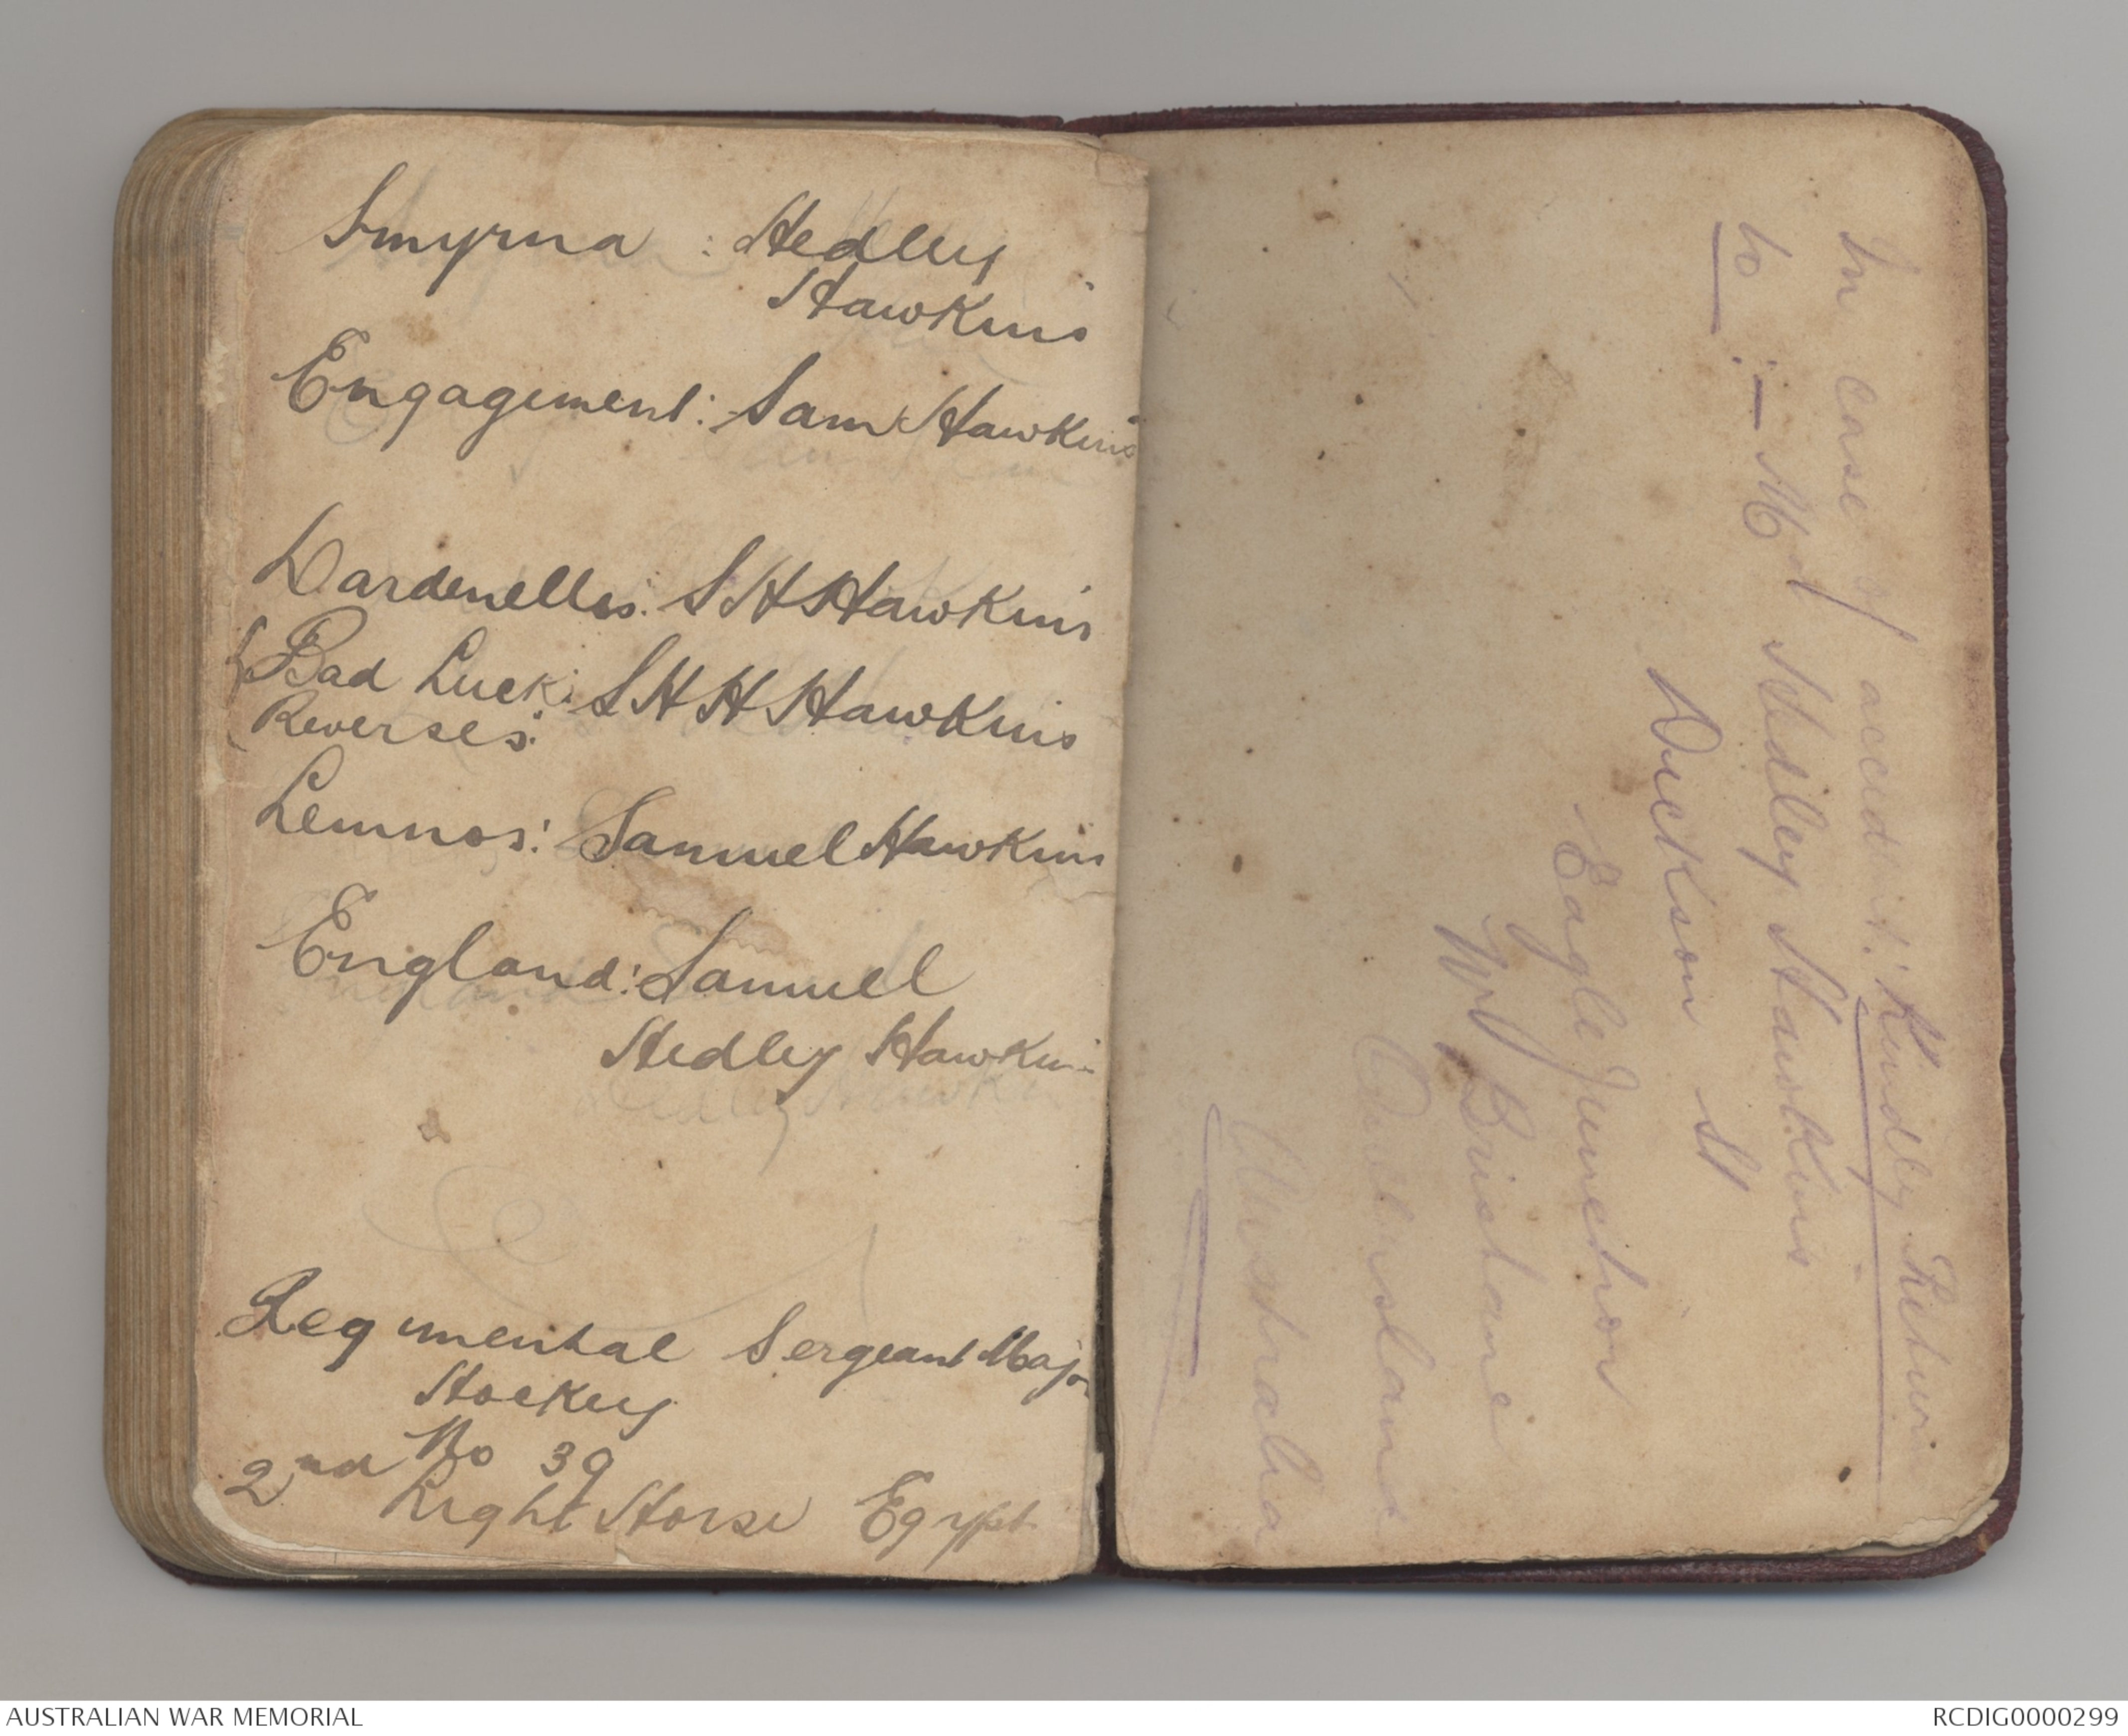 Smyrna : Hedley
Hawkins
Engagement: Sam Hawkins
Dardenelles: S H Hawkins
Bad Luck: S H H Hawkins
Reverses:
Lemnos: Samuel Hawkins
England: Samuel
Hedley Hawkins
Regimental Sergeant Major
Hockey
No 39
2nd Light Horse Egypt
In case of accident: Kindly Return
to :- Hedley Hawkins
Dickson St
Eagle Junction
Brisbane
Queensland
Australia
AUSTRALIAN WAR MEMORIAL
RCDIG0000299